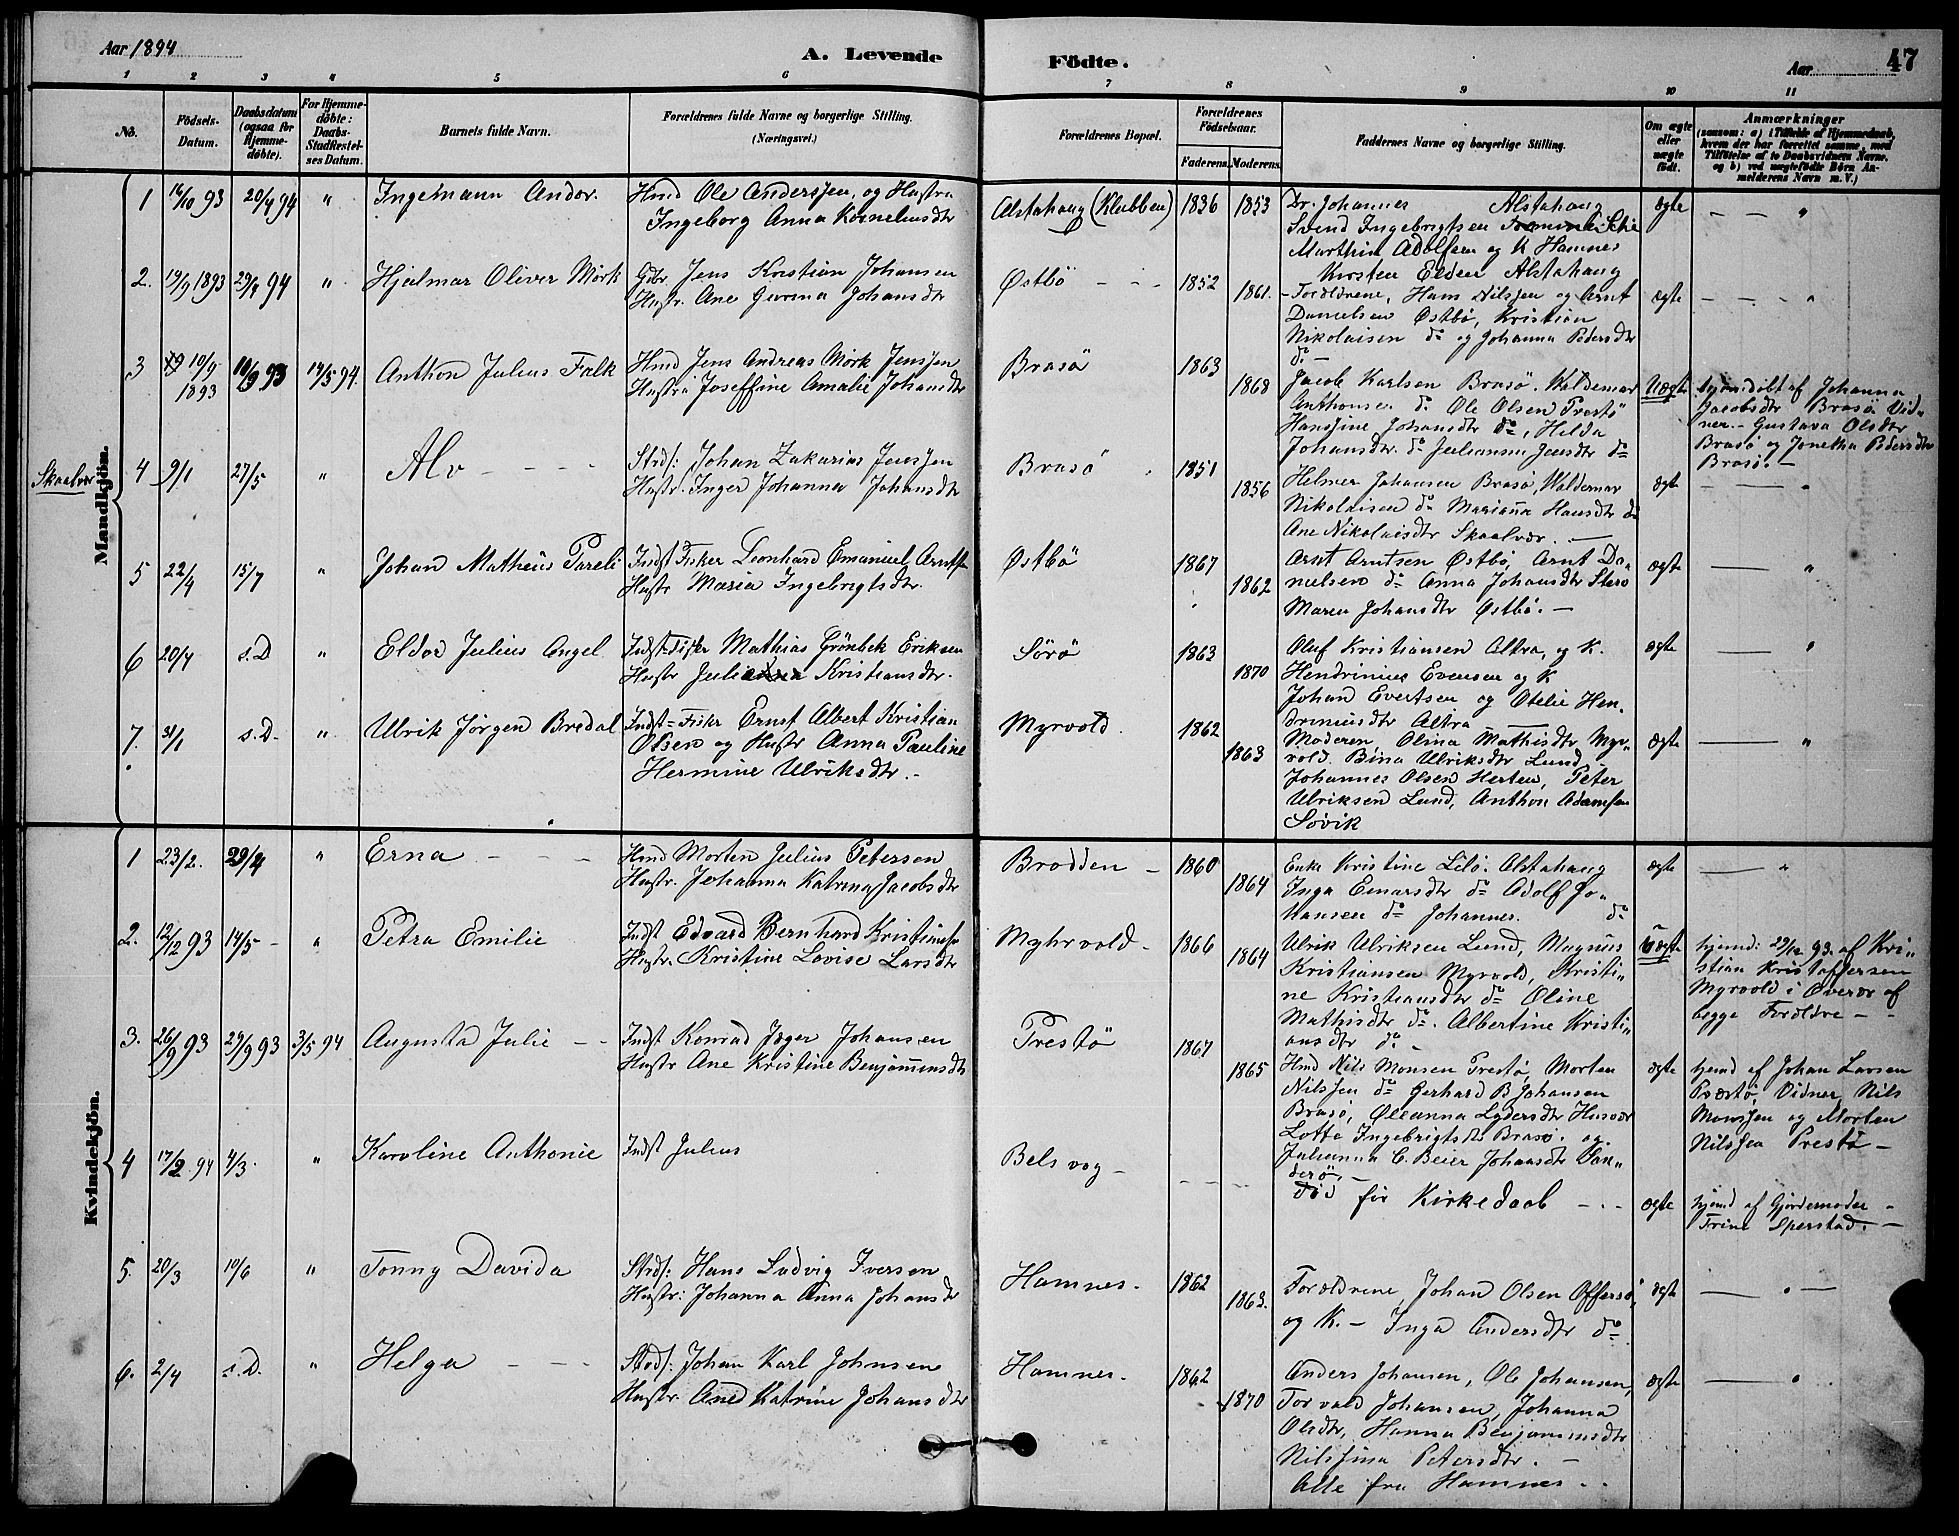 Aar 1894
A. Levende Födte.
Aar
47
1 2 3 4 5 6 7 8 9 10 11
No.
Födsels-Datum.
Daabsdatum (ogsaa for Hjemme-döbte).
For Hjemme-döbte: Daabs-Stadfæstel-ses Datum.
Barnets fulde Navn.
Forældrenes fulde Navne og borgerlige Stilling. (Næringsvei.)
Forældrenes Bopæl.
Forældrenes Födselsaar.
Faderens. Moderens.
Faddernes Navne og borgerlige Stilling.
Om ægte eller uægte födt.
Anmærkninger
(saasom: a) i Tilfælde af Hjemmedaab, hvem der har forrettet samme, med Tilföielse af to Daabsvidners Navne, og b) ved uægtefödte Börn An-melderens Navn m.V.)
Mandkjön.
1 16/10 93 20/4 94 " Ingemann Andor.
Hmd Ole Anderssen, og Hustru
Ingeborg Anna Korneliusdtr
Alstahaug (Klubben) 1836 1853
Dr. Johannes Alstahaug
Svend Ingebrigtsen
Marthin Adolfsen og K Hamnes
Kirsten Elden Alstahaug
ægte
2. 19/9 1893 29/4 94 " Hjalmar Oliver Mörk
Gdbr. Jens Kristian Johansen
Hustr. Ane Johansdtr
Østbö 1852 1861.
Forældrene, Hans Nilssen og Arnt
Danielsen Østbö, Kristian
Nikolaisen do og Johanna Pedersdtr
do
ægte
3 10/9 1893 10/9 93 14/5 94. Anthon Julius Falk
Hmd Jens Andreas Mörk Jenssen
Hustru Joseffine Amalie Johansdtr
Brasö 1863 1868
Jacob Karlsen Brasö. Waldemar
Anthonsen do Ole Olsen Prestö
Hansine Johansdtr do, Hilda
Johansdtr. do Julianna Jensdtr do
Uægte
hjemdöbt af Johanna
Jacobsdtr Brasö Vid-
ner. Gustava Olsdtr
Brasö og Jonetha Pedersdtr
Brasö. -
Skaalvær
4 9/1 27/5 " Alv
Strds: Johan Zakarias Jenssen
Hustr. Inger Johanna Johansdtr
Brasö 1851 1856
Helmer Johansen Brasö, Waldemar
Nikolaisen do Marianna Hansdtr do
Ane Nikolaisdtr Skaalvær.
ægte
5 22/4 15/7 " Johan Matheus Pareli
Indst Fisker Leonhard Emanuel Arntsn
Hustr Maria Ingebrigtsdtr.
Østbö 1867 1862
Arnt Arntsen Østbö, Arnt Da-
nielsen do Anna Johansdtr
Maren Johansdtr Østbö. -
ægte
6 20/4 s.D " Eldor Julius Angel
Indst Fisker Mathias Grönbek Eriksen
Hustr Julianna Kristiansdtr.
Sörö 1863 1870
Oluf Kristiansen Altra, og K.
Hendrinius Evensen og K
Johan Evertsen og Otelie Hen-
driniusdtr Altra
ægte
7. 31/1 s.D. " Ulrik Jörgen Bredal
Indst=Fisker Ernst Albert Kristian
Olsen og Hustr Anna Pauline
Hermine Ulriksdtr.
Myrvold. 1862 1863
Moderen, Olina Mathisdtr Myr-
vold. Bina Ulriksdtr Lund,
Johannes Olsen Herten, Peter
Ulriksen Lund, Anthon Adamsen
Sövik
ægte
Kvindekjön.
1 23/2. 29/4 " Erna
Hmd Morten Julius Petersen
Hustr. Johanna Katrina Jacobsdtr
Brodden 1860 1864
Enke Kristine Lilö. Alstahaug
Inga Einarsdtr do Adolf Jo-
hansen do Johannes. do
ægte
2. 12/12 93 14/5 " Petra Emilie
Indst Edvard Bernhard Kristiansn
Hustr. Kristine Lovise Larsdtr
Myhrvold 1866 1864
Ulrik Ulriksen Lund, Magnus
Kristiansen Myrvold, Kristi-
ne Kristiansdtr do Oline
Mathisdtr do. Albertine Kristi-
ansdtr do.
Uægte
hjemd: 29/12 93. af Kri-
stian Kristoffersen
Myrvold i Overvær af
begge Forældre
3. 26/9 93 29/9 93 3/5 94 Augusta Julie
Indst Konrad Jager Johansen
Hustr Ane Kristine Benjaminsdtr
Prestö 1867 1865
Hmd Nils Monsen Prestö, Morten
Nilssen do Gerhard B Johansen
Brasö, Oleanna Lydersdtr Husvær
Lotte Ingebrigtsdtr Brasö. og
Julianna C. Beier Johansdtr San-
derö. -
ægte
hjemd af Johan Larsen
Præstö, Vidner Nils
Monssen og Morten
Nilssen Prestö
4 17/2 94 4/3. " Karoline Anthonie
Indst Julius
Belsvog
död för Kirkedaab
ægte
hjemd af Gjordemoder
Trine Sperstad.
5. 20/3 10/6 " Tonny Davida
Strds: Hans Ludvig Iversen
Hustr: Johanna Anna Johansdtr
Hamnes. 1862 1863.
Forældrene, Johan Olsen Offersö,
og K. - Inga Andersdtr do
ægte
6. 2/4 s.D. " Helga
Strds: Johan Karl Johnsen
Hustr. Ane Katrine Johansdtr
Hamnes. 1862 1870
Anders Johansen, Ole Johansen,
Torvald Johansen, Johanna
Olsdtr, Hanna Benjaminsdtr
Nilssina Petersdtr.
Alle fra Hamnes
ægte